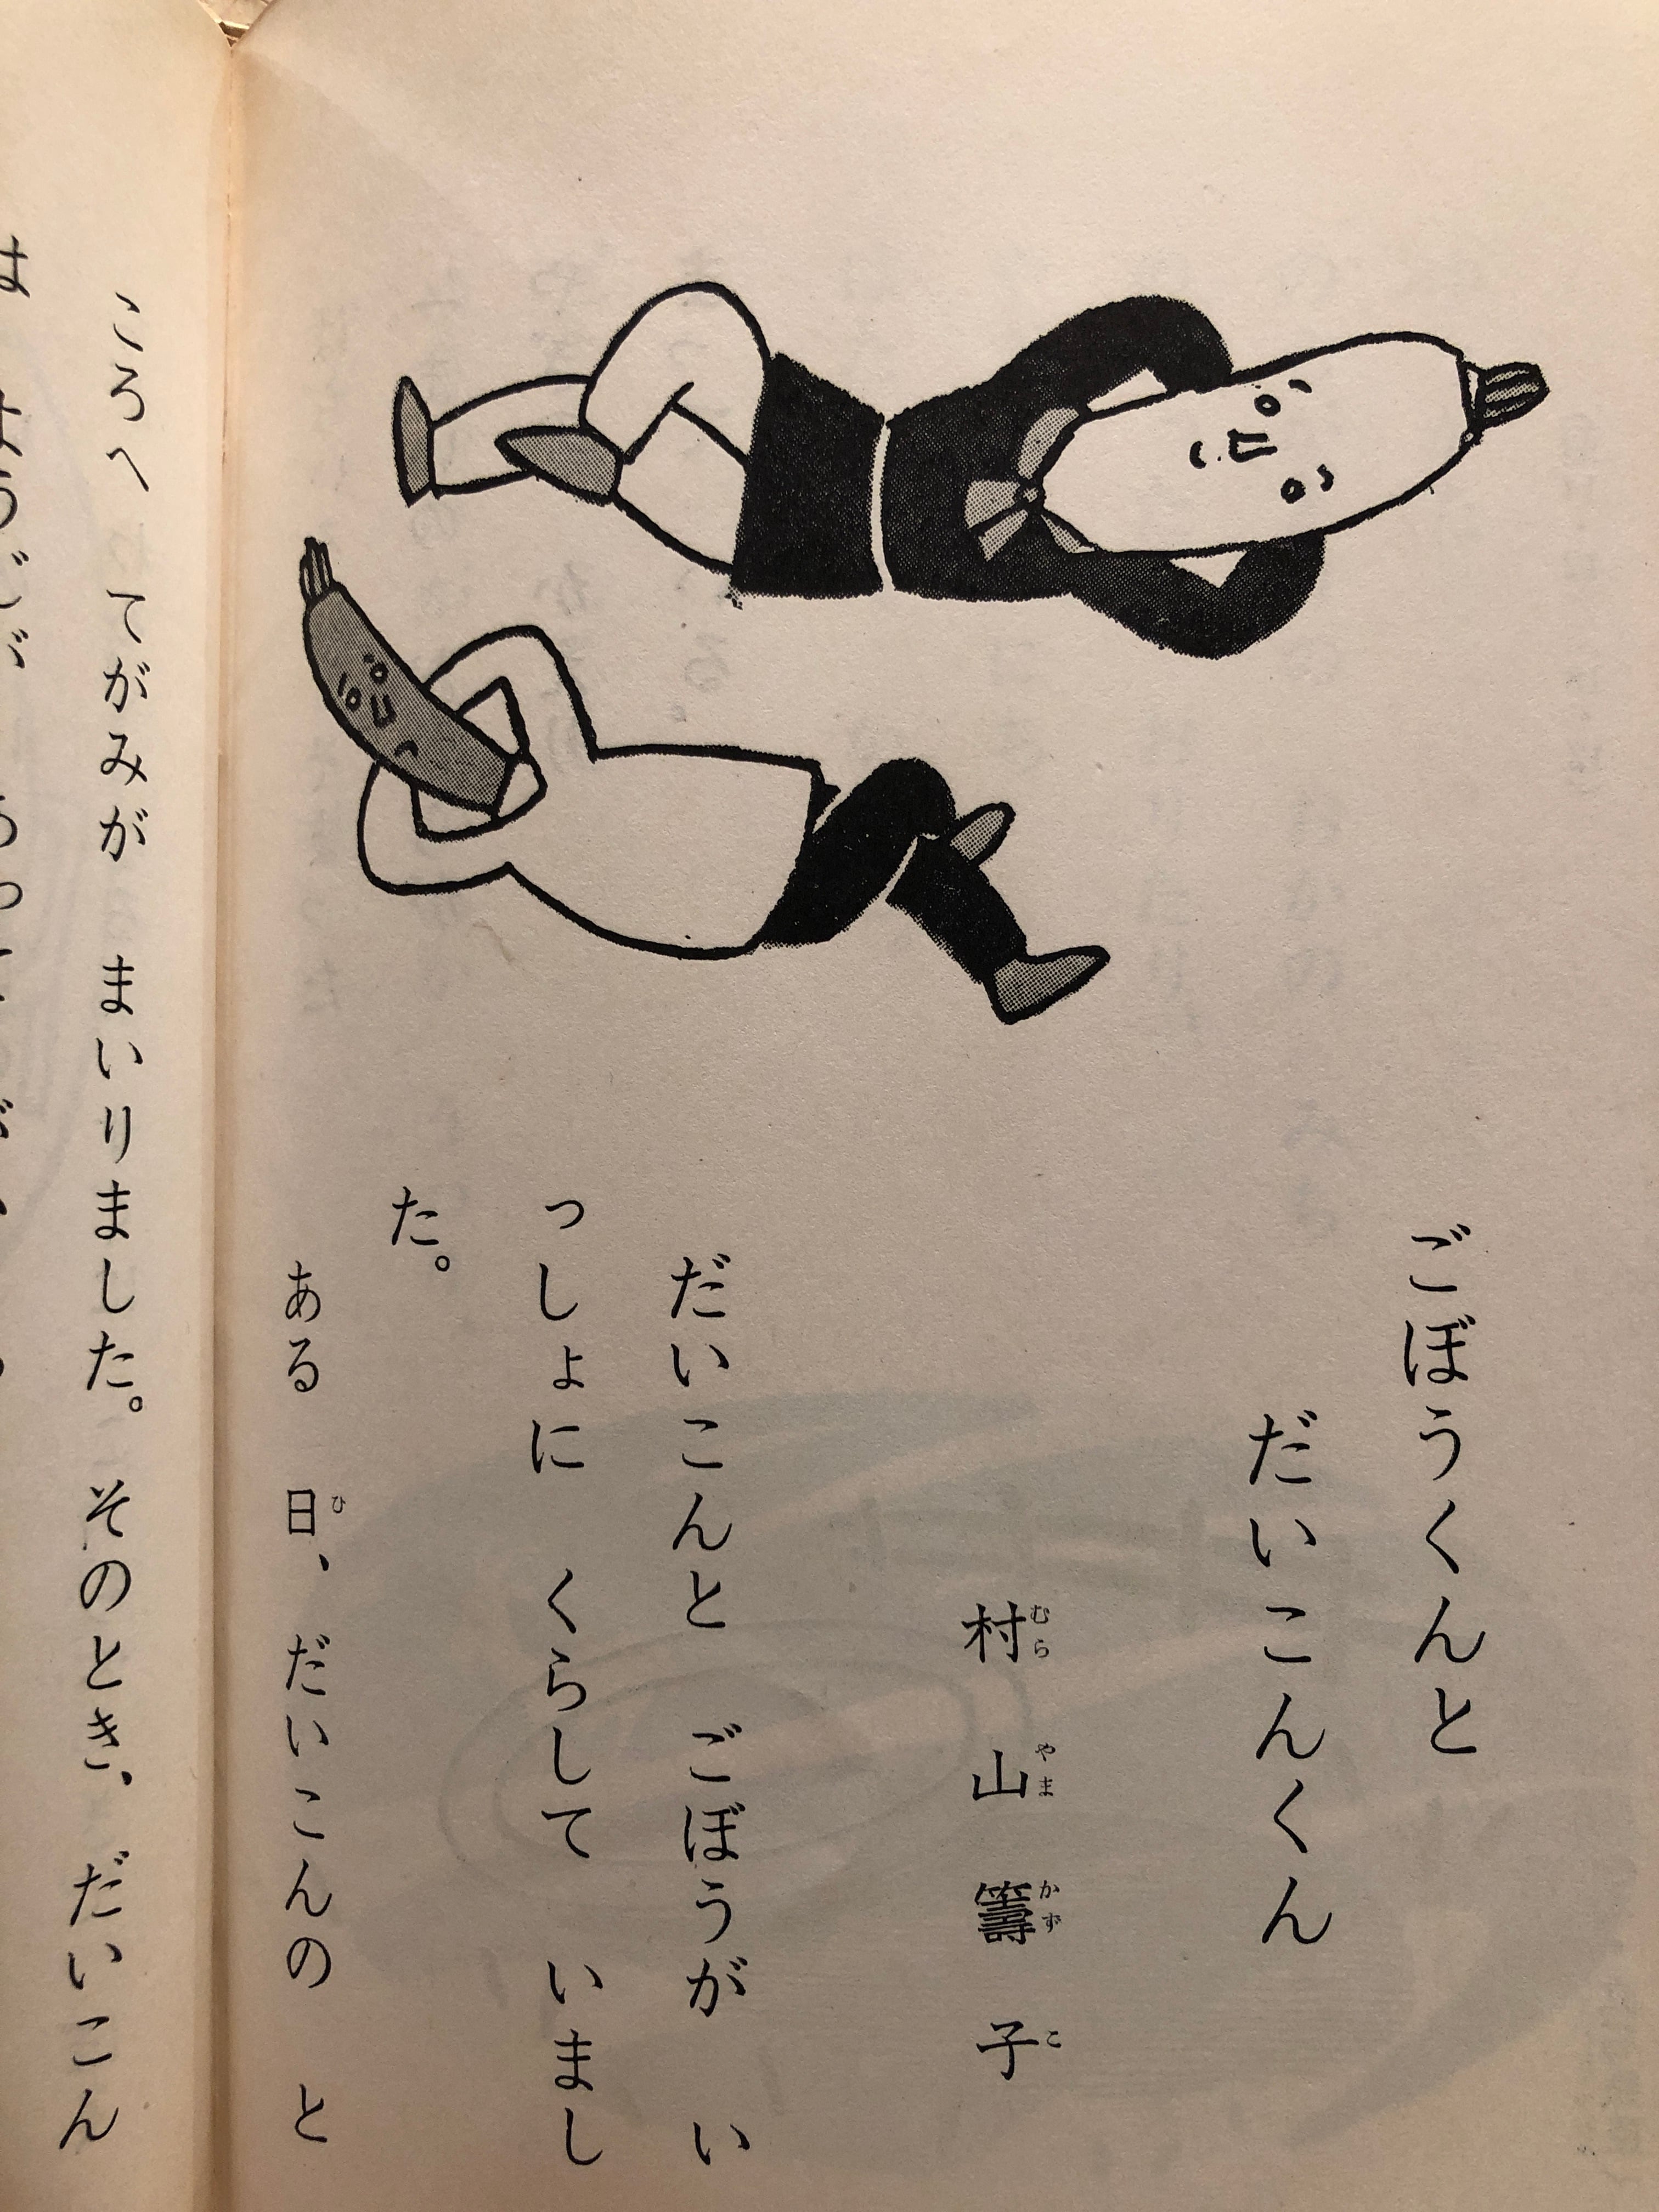 ごぼうくんと
だいこんくん
村山籌子
むら やま かず こ
だいこんと ごぼうが い
っしょに くらして いまし
た。
ある 日、 だいこんの と
ひ
ころへ てがみが まいりました。 そのとき、 だいこん